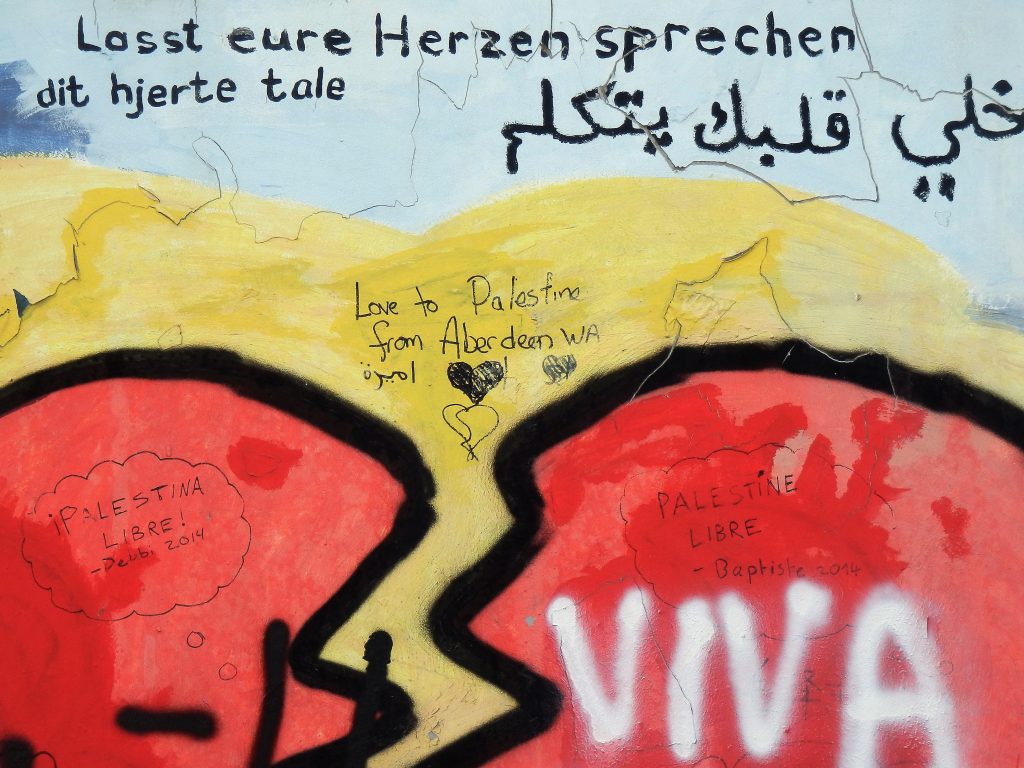 Lasst eure Herzen sprechen
dit hjerte tale
خلي قلبك يتكلم
Love to Palestine
from Aberdeen WA
اميرة
¡PALESTINA
LIBRE!
2014
PALESTINE
LIBRE
- Baptiste 2014
VIVA